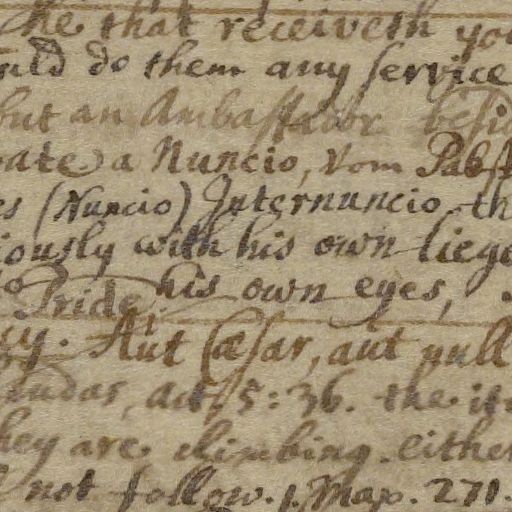 he that receiveth you
uld do them any service
but an Ambassador besid
ate) a Nuncio, Vom Pabst
es (Nuncio) Internuncio th
iously with his own liege
his own eyes,
Pride
cy. Aut Cæsar, aut null
eudas, act. 5: 36. the its
hey are climbing. either
not follow. 1. Map. 271.